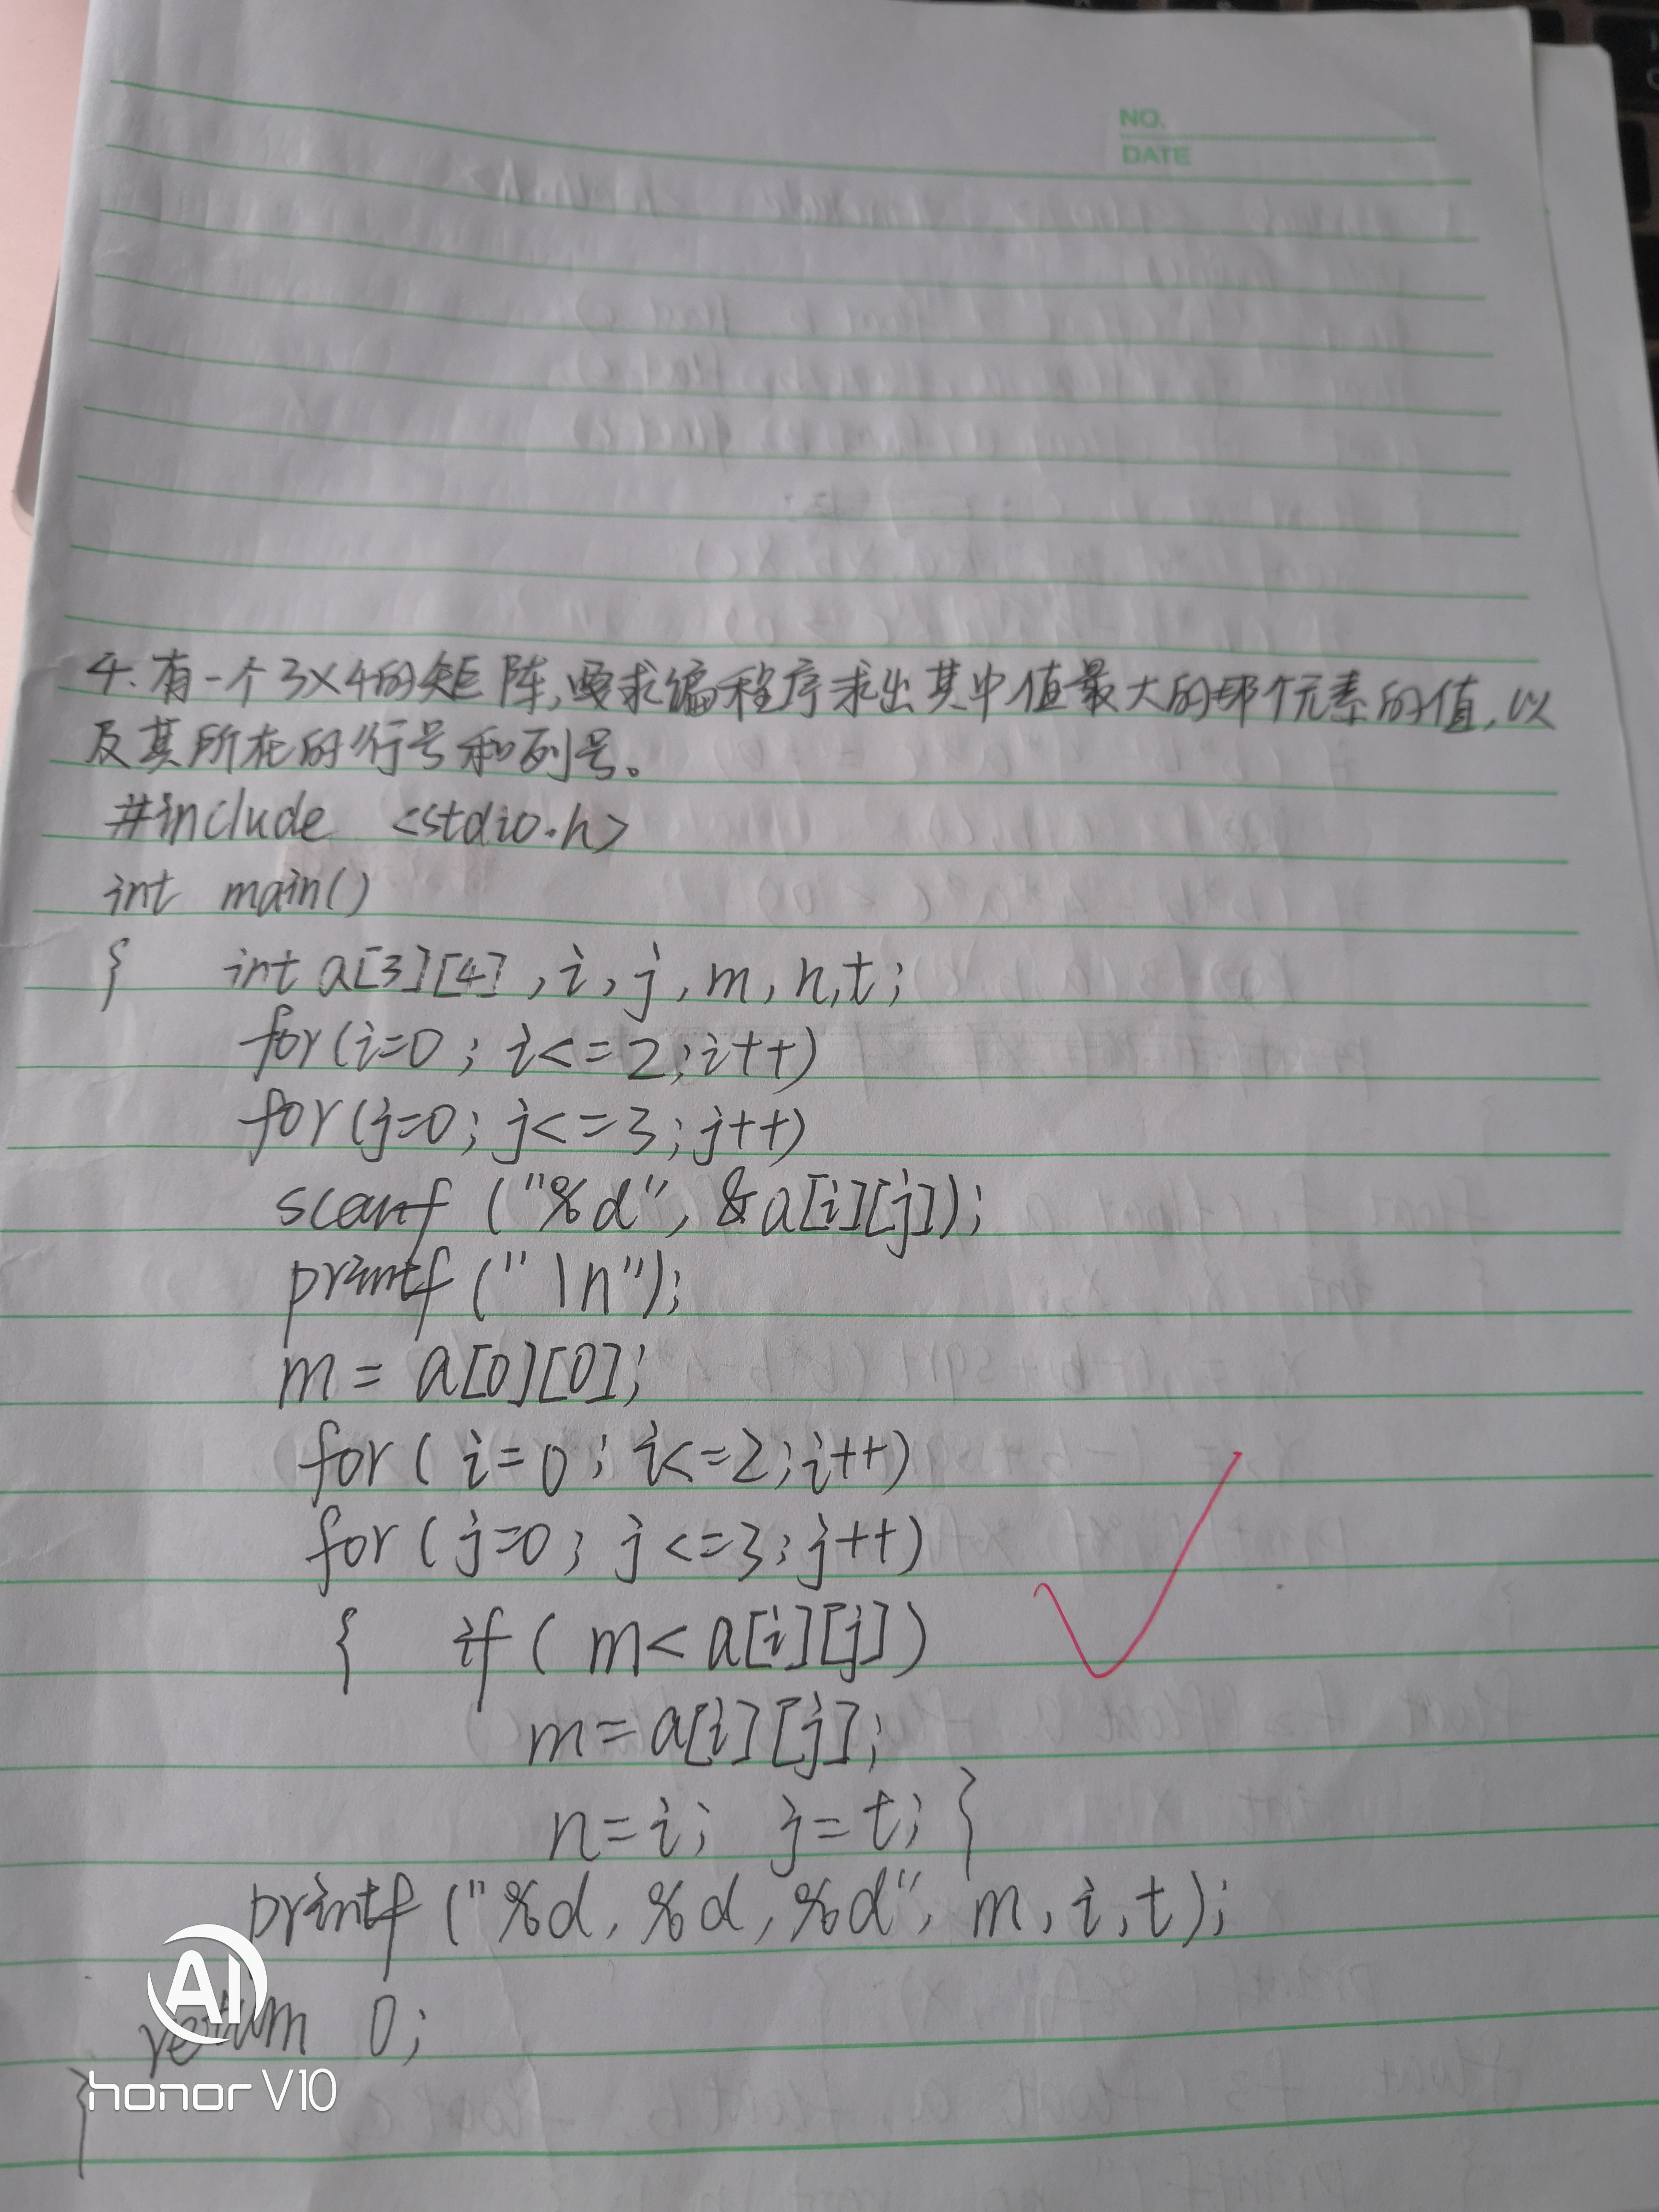 NO.
DATE
4. 有一个3×4的矩阵,要求编程序求出其中值最大的那个元素的值,以
及其所在的行号和列号。
#include <stdio.h>
int main()
{ int a[3][4],i,j,m,n,t;
for(i=0;i<=2;i++)
for(j=0;j<=3;j++)
scanf("%d",&a[i][j]);
printf("\n");
m=a[0][0];
for(i=0;i<=2;i++)
for(j=0;j<=3;j++)
{ if(m<a[i][j])
m=a[i][j];
n=i; j=t;}
printf("%d,%d,%d",m,i,t);
return 0;
}
AI
honor V10